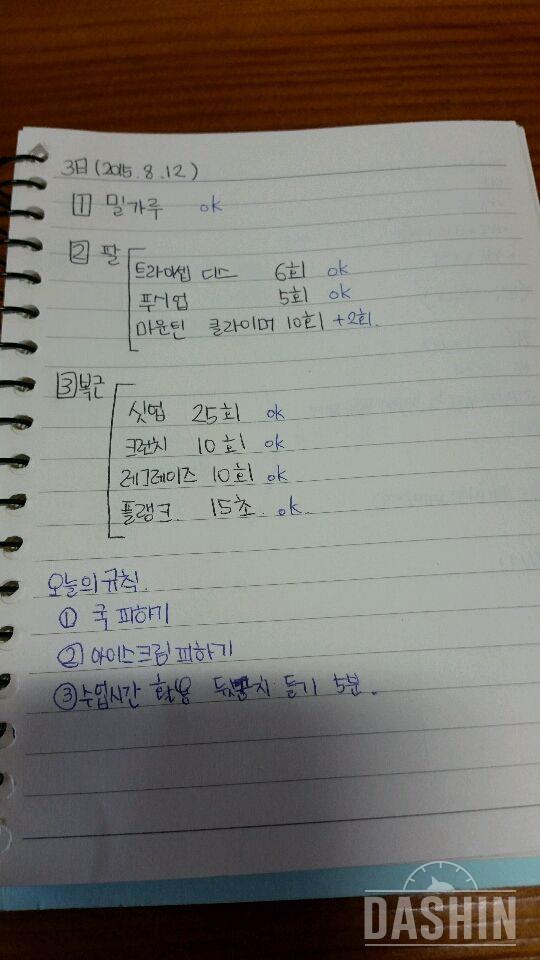 3日 (2015.8.12)
1 밀가루 ok
2 팔
트라이셉 디스 6회 ok
푸시업 5회 ok
마운틴 클라이머 10회 +2회.
3 복근
싯업 25회 ok
크런치 10회 ok
레그레이즈 10회 ok
플랭크. 15초. ok.
오늘의 규칙.
① 국 피하기
② 아이스크림 피하기
③ 수업시간 활용 뒷꿈치 들기 5분.
DASHIN